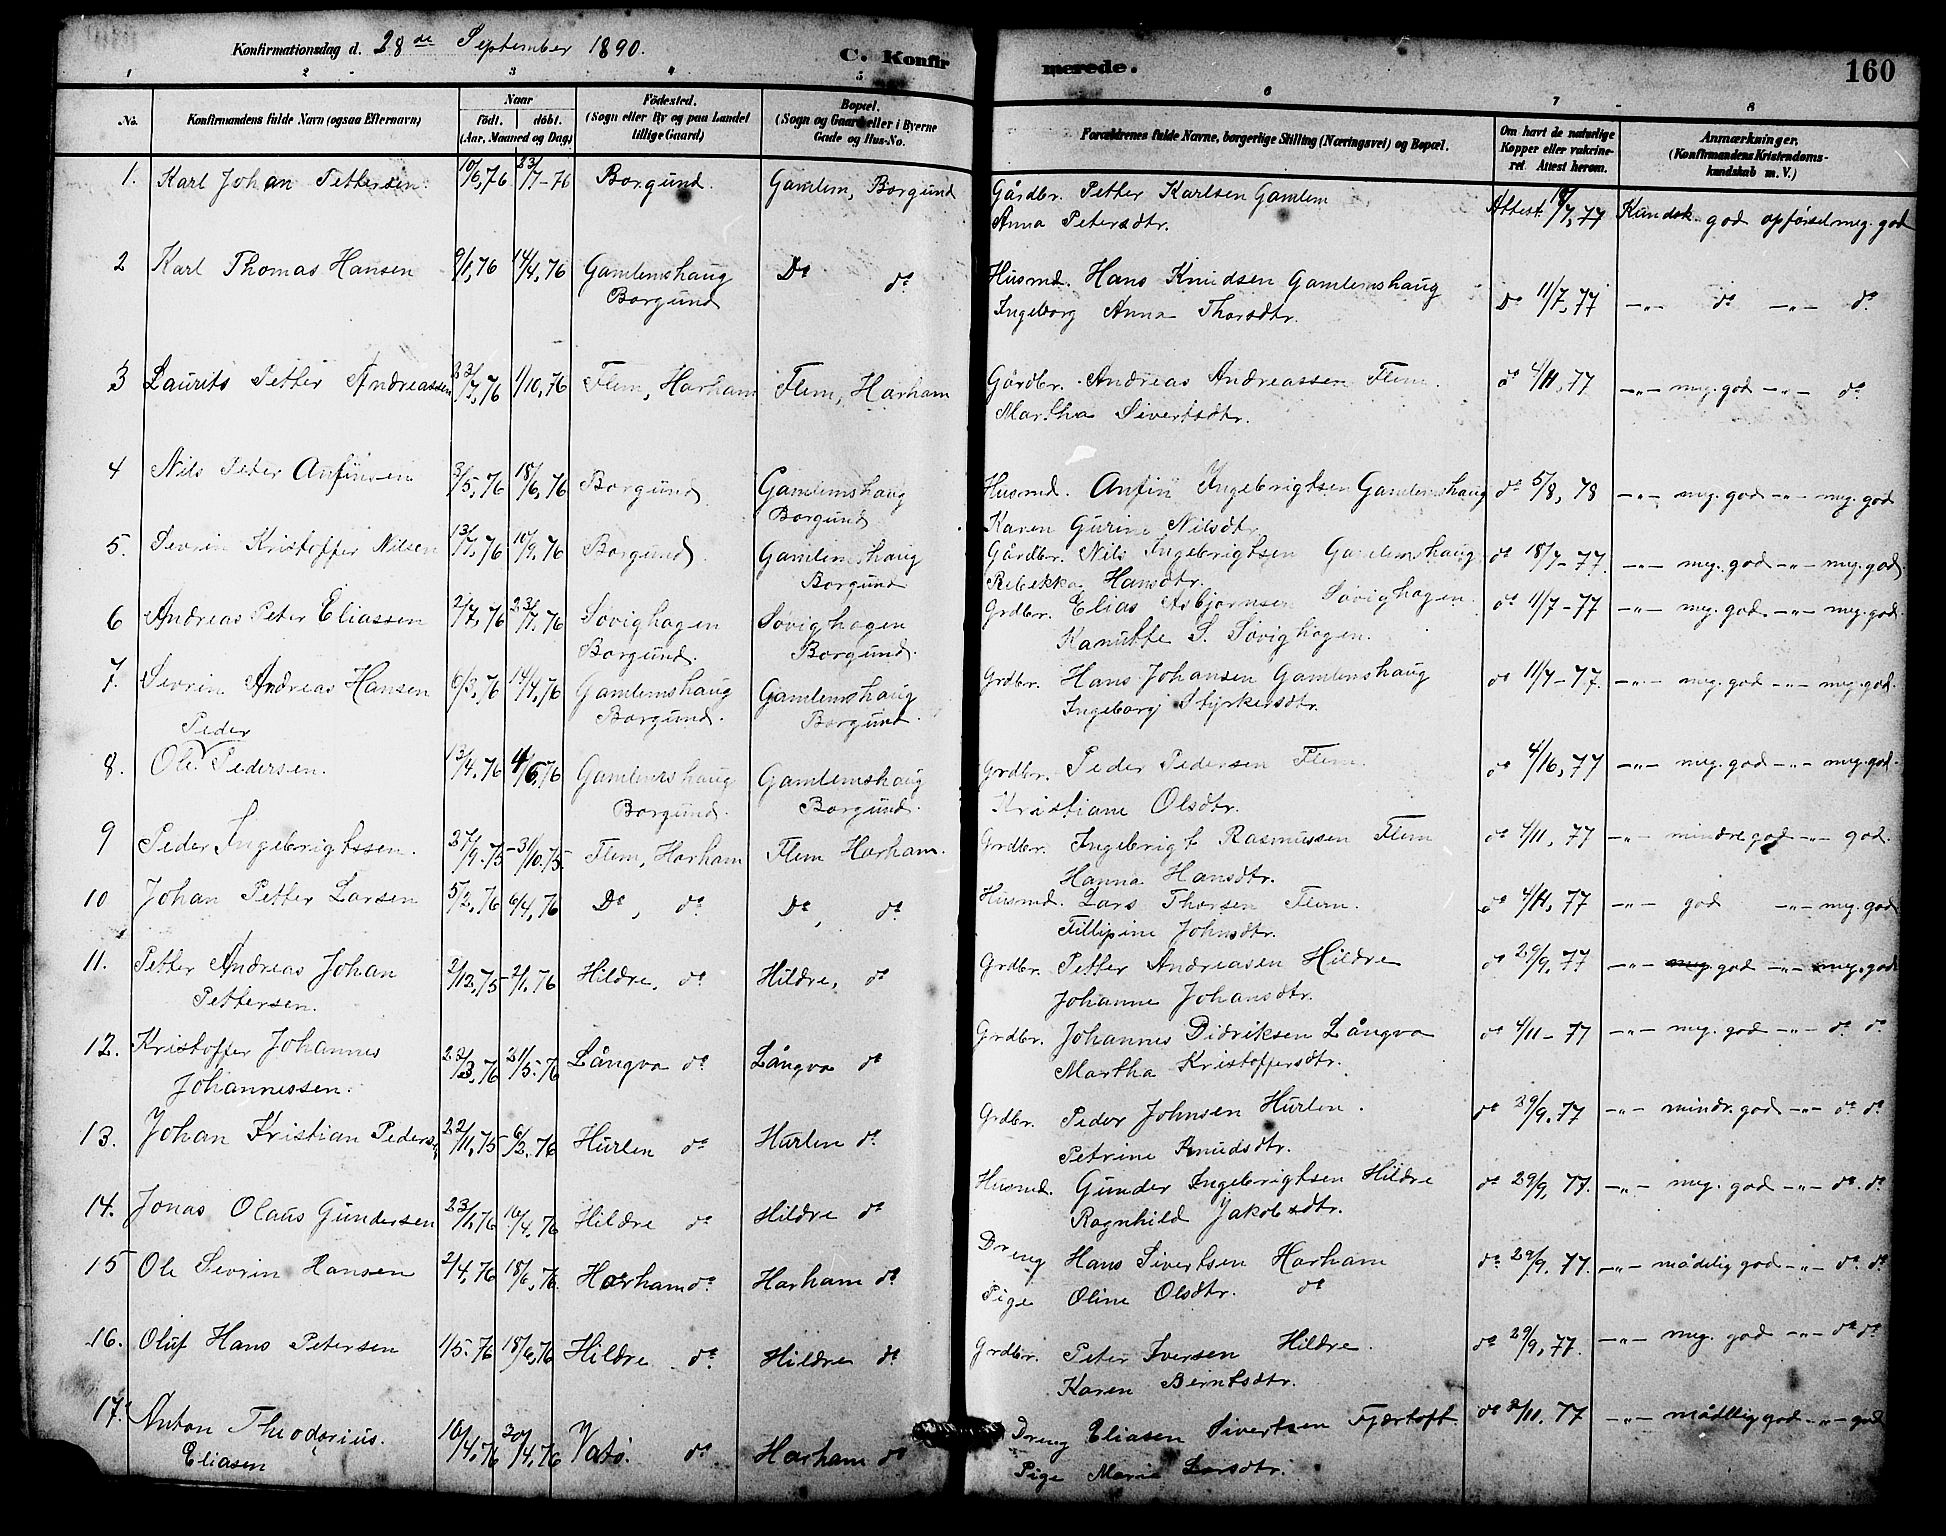 Konfirmationsdag d. 28de September 1890.
C. Konfirmerede.
160
1 2 3 4 5 6 7 8
No.
Konfirmandens fulde Navn (ogsaa Efternavn)
Naar
födt. döbt.
(Aar, Maaned og Dag)
Födested.
(Sogn eller By og paa Landet
tillige Gaard)
Bopæl.
(Sogn og Gaard eller i Byerne
Gade og Hus-No.
Forældrenes fulde Navne, borgerlige Stilling (Næringsvei) og Bopæl.
Om havt de naturlige
Kopper eller vakcine-
ret Attest herom.
Anmærkninger.
(Konfirmandens Kristendoms-
kundskab m. V.)
1. Karl Johan Pettersen. 10/6, 76 23/7-76 Borgund. Gamlem, Borgund Gårdbr. Petter Karlsen Gamlem Attest 18/7, 77 Kundsk. god opførsel meg. god
Anna Petersdtr.
2 Karl Thomas Hansen 9/1, 76 14/4, 76 Gamlemshaug Do do Husmd. Hans Knudsen Gamlemshaug Do 11/7, 77 -"- do -"- do
Borgund Ingeborg Anna Thorsdtr.
3 Laurits Petter Andreassen 23/7, 76 1/10, 76 Flem, Harham Flem, Harham Gårdbr. Andreas Andreassen Flem. do 4/11, 77 -"- meg. god -"- do
Martha Sivertsdtr.
4 Nils Peter Anfinsen 3/5, 76 18/6, 76 Borgund Gamlemshaug Husmd. Anfin Ingebrigtsen Gamlemshaug do 5/8, 78 -"- meg. god -"- meg. god
Borgund Karen Gurine Nilsdtr.
5. Sevrin Kristoffer Nilsen 13/7, 76 10/9, 76 Borgund. Gamlemshaug Gårdbr. Nils Ingebrigtsen Gamlemshaug do 18/7-77. -"- meg. god -"- meg. god.
Borgund Rebekka Hansdtr.
6 Andreas Peter Eliassen 2/7, 76 23/7, 76 Søvighagen Søvighagen Grdbr. Elias Asbjørnsen Søvighagen. do 11/7-77 -"- meg. god. -"- meg. god.
Borgund. Borgund. Kanutte S. Søvighagen.
7. Sevrin Andreas Hansen 6/3, 76 14/4, 76 Gamlemshaug Gamlemshaug Grdbr. Hans Johansen Gamlemshaug do 11/7-77. -"- meg. god -"- meg. god.
Borgund. Borgund. Ingeborg Styrkersdtr.
Peder
8. Ole Pedersen. 13/4, 76 4/6, 76 Gamlemshaug Gamlemshaug Grdbr. Peder Pedersen Flem. do 4/10, 77 -"- meg. god -"- meg. god.
Borgund. Borgund. Kristiane Olsdtr.
9 Peder Ingebrigtssen. 27/9-75 -31/10.75. Flem, Harham Flem Harham. Grdbr. Ingebrigt Rasmussen Flem do 4/11, 77 -"- mindre god -"- god.
Hanna Hansdtr.
10 Johan Petter Larsen 5/2, 76 6/4, 76 Do, do Do, do Husmd. Lars Thorsen Flem. do 4/11, 77 -"- god -"- meg. god
Fillipine Johnsdtr.
11. Petter Andreas Johan 2/12, 75 2/1, 76 Hildre, do Hildre, do Grdbr. Petter Andreasen Hildre do 29/9, 77 -"- meg. god -"- meg. god
Pettersen. Johanne Johansdtr.
12. Kristoffer Johannes 22/3, 76 21/5-76 Långva do Långva do Grdbr. Johannes Didriksen Långva do 4/11-77 -"- meg. god -"- do do
Johannessen. Martha Kristoffersdtr.
13. Johan Kristian Peders 22/11, 75 6/2. 76 Hurlen do Hurlen do Grdbr. Peder Johnsen Hurlen. do 29/9, 77 -"- mindr. god -"- do do
Petrine Knudsdtr.
14. Jonas Olaus Gundersen 23/1, 76 16/4, 76 Hildre do Hildre do Husmd. Gunder Ingebrigtsen Hildre do 29/9, 77. -"- meg. god -"- do do
Ragnhild Jakobsdtr.
15 Ole Sevrin Hansen 2/4, 76 18/6, 76. Harham do Harham do Dreng Hans Sivertsen Harham do 29/9. 77. -"- mådelig god -"- do do
Pige Oline Olsdtr. do
16. Oluf Hans Petersen 1/5. 76 18/6, 76 Hildre do Hildre do Grdbr. Peter Iversen Hildre. do 29/9, 77. -"- meg. god -"- do do
Karen Berntsdtr.
17. Anton Theodorius. 16/4, 76 30/4, 76 Vatø. do Harham do Dreng Eliasen Sivertsen Fjørtoft do 2/11. 77 -"- mådelig god -"- god
Eliasen Pige Marie Larsdtr.